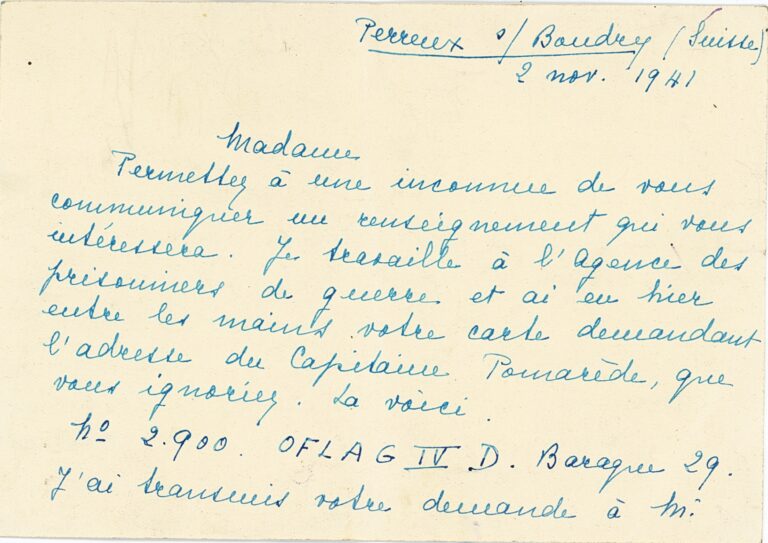 Perreux s/ Boudry (Suisse)
2 nov. 1941
Madame
Permettez à une inconnue de vous
communiquer un renseignement qui vous
intéressera. Je travaille à l'Agence des
prisonniers de guerre et ai eu hier
entre les mains votre carte demandant
l'adresse du Capitaine Pomarède, que
vous ignoriez. La voici.
No 2.900. OFLAG IV D. Baraque 29.
J'ai transmis votre demande à M.